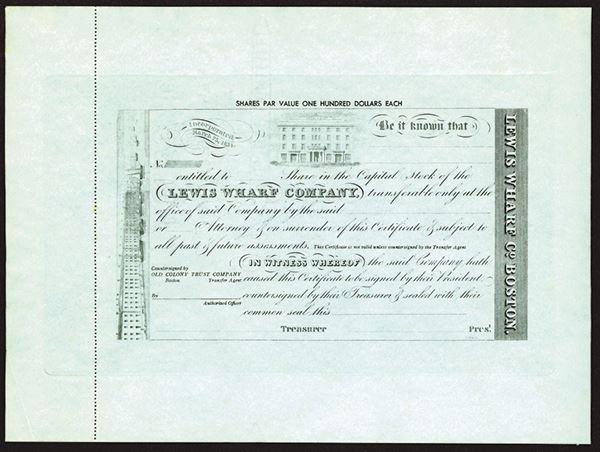 SHARES PAR VALUE ONE HUNDRED DOLLARS EACH
Incorporated
March 25, 1834
Be it known that
No.
entitled to Share in the Capital Stock of the
LEWIS WHARF COMPANY, transferable only at the
office of said Company by the said
or Attorney & on surrender of this Certificate & subject to
all past & future assessments. This Certificate is not valid unless countersigned by the Transfer Agent
IN WITNESS WHEREOF the said Company hath
caused this Certificate to be signed by their President
countersigned by their Treasurer & sealed with their
common seal this
Countersigned by
OLD COLONY TRUST COMPANY
Boston Transfer Agent
By
Authorized Officer
Treasurer Pres!
LEWIS WHARF Co. BOSTON.